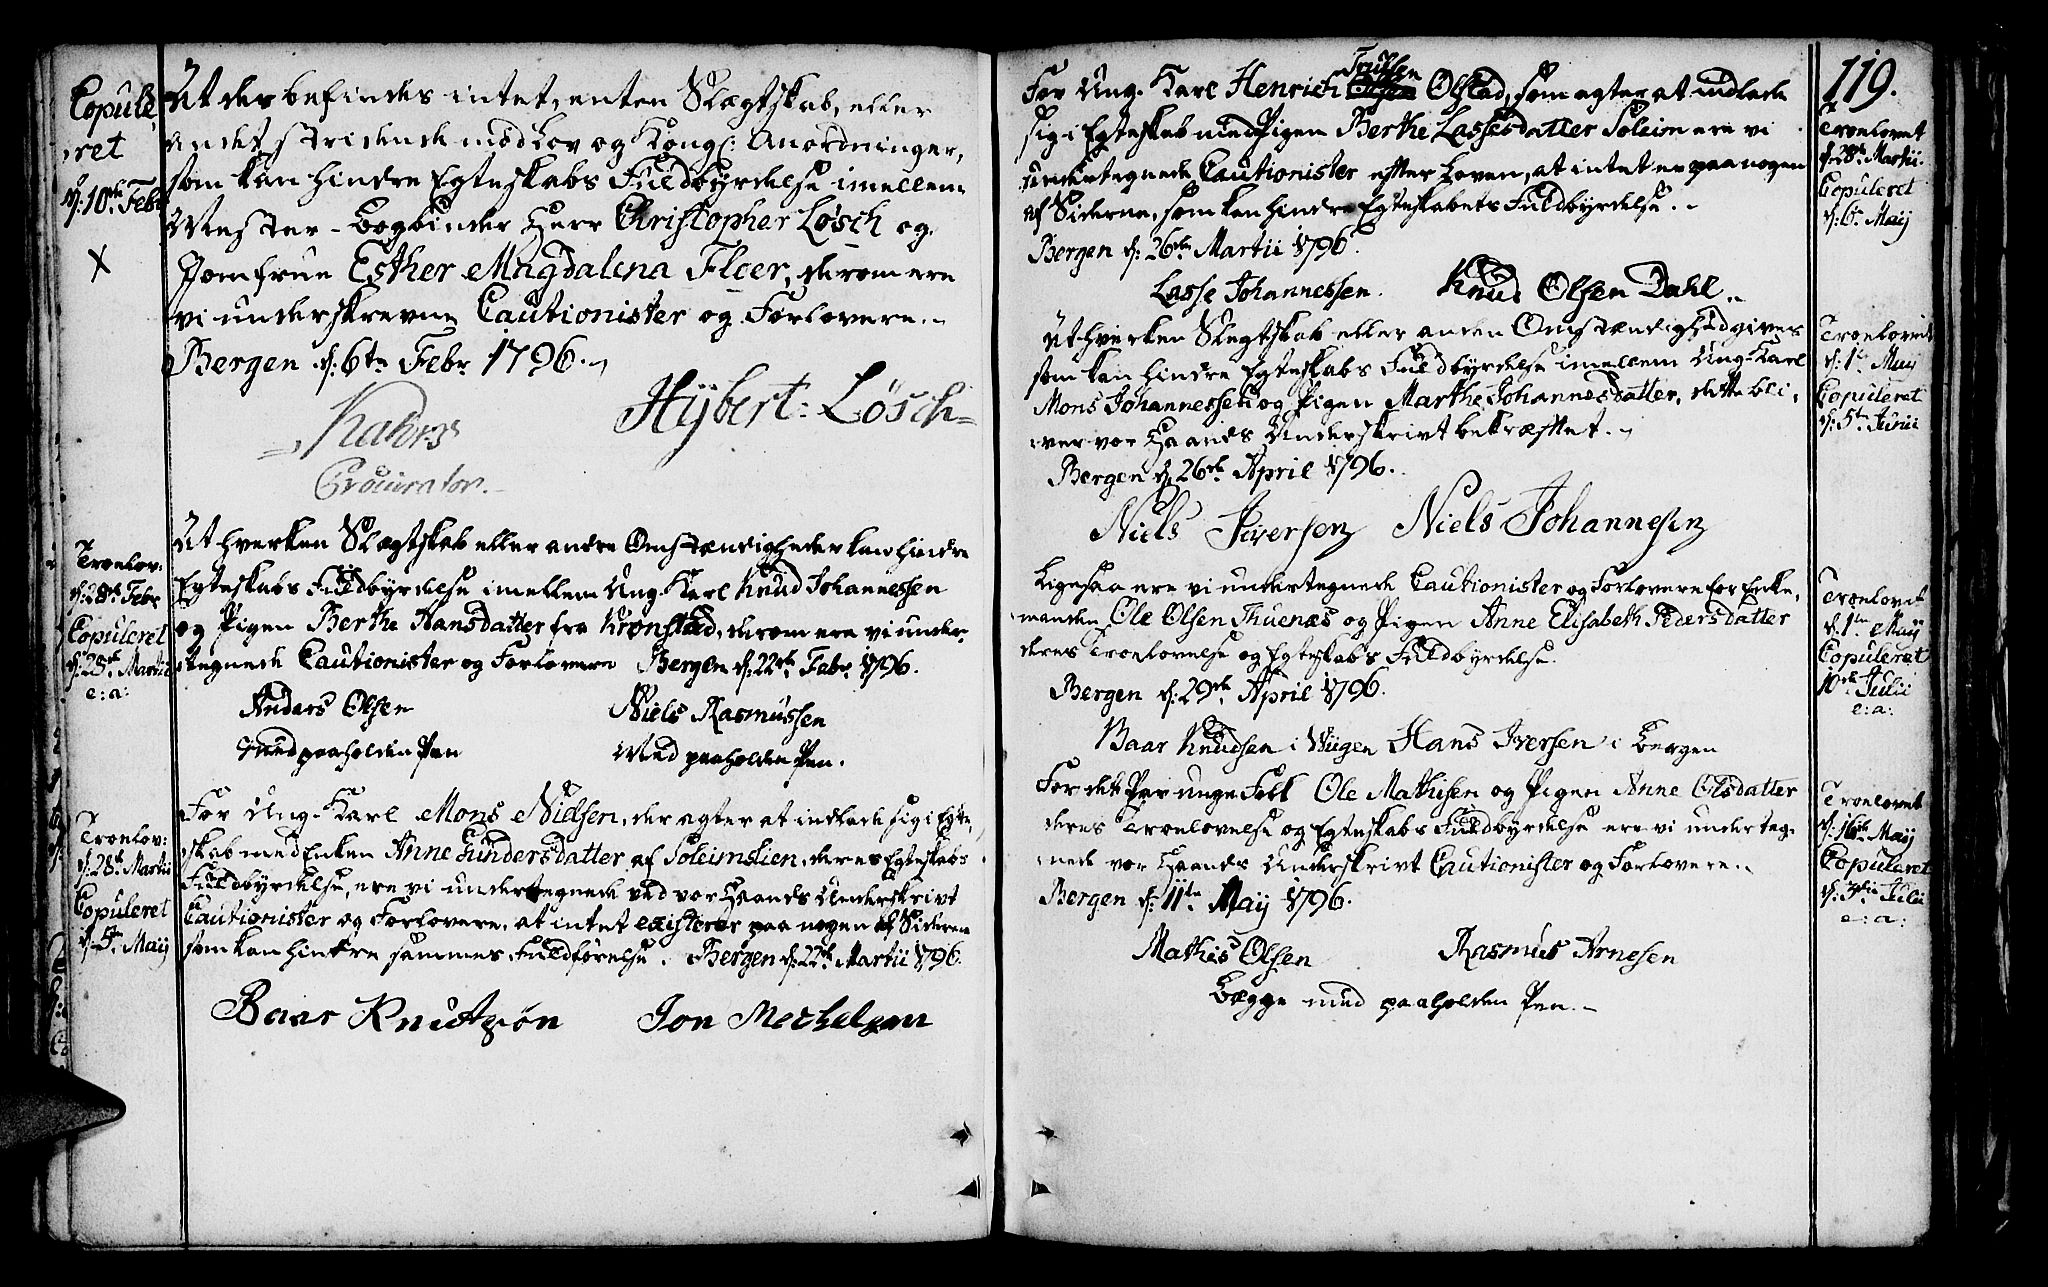 Copule,
ret
d: 10de Febr
X
At der befindes intet, enten Slægtskab, eller
andet stridende mod Lov og Kongl: Anordninger,
som kan hindre Egteskabs Fuldbyrdelse imellem
Mester-Bogbinder Herr Christopher Løsch og
Jomfrue Esther Magdalena Floer, derom ere
vi underskrevne Cautionister og Forlovere.
Bergen d: 6te Febr 1796.
Hijbert: Løsch
Procurator.
Troelov:
d: 28de Febr
Copuleret
d: 28de Martii
e: a:
At hverken Slægtskab eller andre Omstændigheder kan hindre
Egteskabs Fuldbyrdelse imellem Ung-Karl Knud Johannessen
og Pigen Berthe Hansdatter fra Kronstad, derom ere vi under,
tegnede Cautionister og Forlovere Bergen d: 22de Febr 1796.
Anders Olsen Niels Rasmussen
med paaholden Pen Med paaholden Pen.
Troelov:
d: 28de Martii
Copuleret
d: 5te Maij
For Ung-Karl Mons Nielsen, der agter at indlade sig i Egte,
skab med Enken Anne Gundersdatter af Soleimslien, deres Egteskabs
Fuldbyrdelse, ere vi undertegnede ved vor Haands Underskrivt
Cautionister og Forlovere, at intet existerer paa nogen af Siderne
som kan hindre sammes Fuldførelse. Bergen d: 22de Martii 1796.
Baar Knutzøn Jon Mechelsen
119.
For Ung-Karl Henrich Trulsen Olstad, som agter at indlade
sig i Egteskab med Pigen Berthe Lassesdatter Soleim ere vi
undertegnede Cautionister efter Loven, at intet er paa nogen
af Siderne, som kan hindre Egteskabets Fuldbyrdelse.
Bergen d: 26de Martii 1796.
Lasse Johannessen. Knud Olsen Dahl.
Troelovet
d: 28de Martii
Copuleret
d: 6te Maij
At hverken Slegtskab eller anden Omstændighed gives
som kan hindre Egteskabs Fuldbyrdelse imellem Ung-Karl
Mons Johannessen og Pigen Marthe Johannesdatter, dette bli,
ver vor Haands Underskrivt bekræftet.
Bergen d: 26de April 1796.
Niels Iversen Niels Johannesen
Troelovet
d: 1te Maij
Copuleret
d: 5te Junii
Ligesaa ere vi undertegnede Cautionister og Forlovere for Enke,
manden Ole Olsen Thuenæs og Pigen Anne Elisabeth Pedersdatter
deres Troelovelse og Egteskabs Fuldbyrdelse.
Bergen d: 29de April 1796.
Baar Knudsen i Wiigen Hans Iversen i Bergen
Troelovet
d: 1te Maij
Copuleret
10de Julii
e: a:
For dette Par unge Folk Ole Mathisen og Pigen Anne Olsdatter
deres Troelovelse og Egteskabs Fuldbyrdelse ere vi underteg,
nede vor Haands Underskrivt Cautionister og Forlovere.
Bergen d: 11te Maij 1796.
Mathis Olsen Rasmus Arnesen
Begge med paaholden Pen.
Troelovet
d: 16de Maij
Copuleret
d: 3die Julii
e: a: